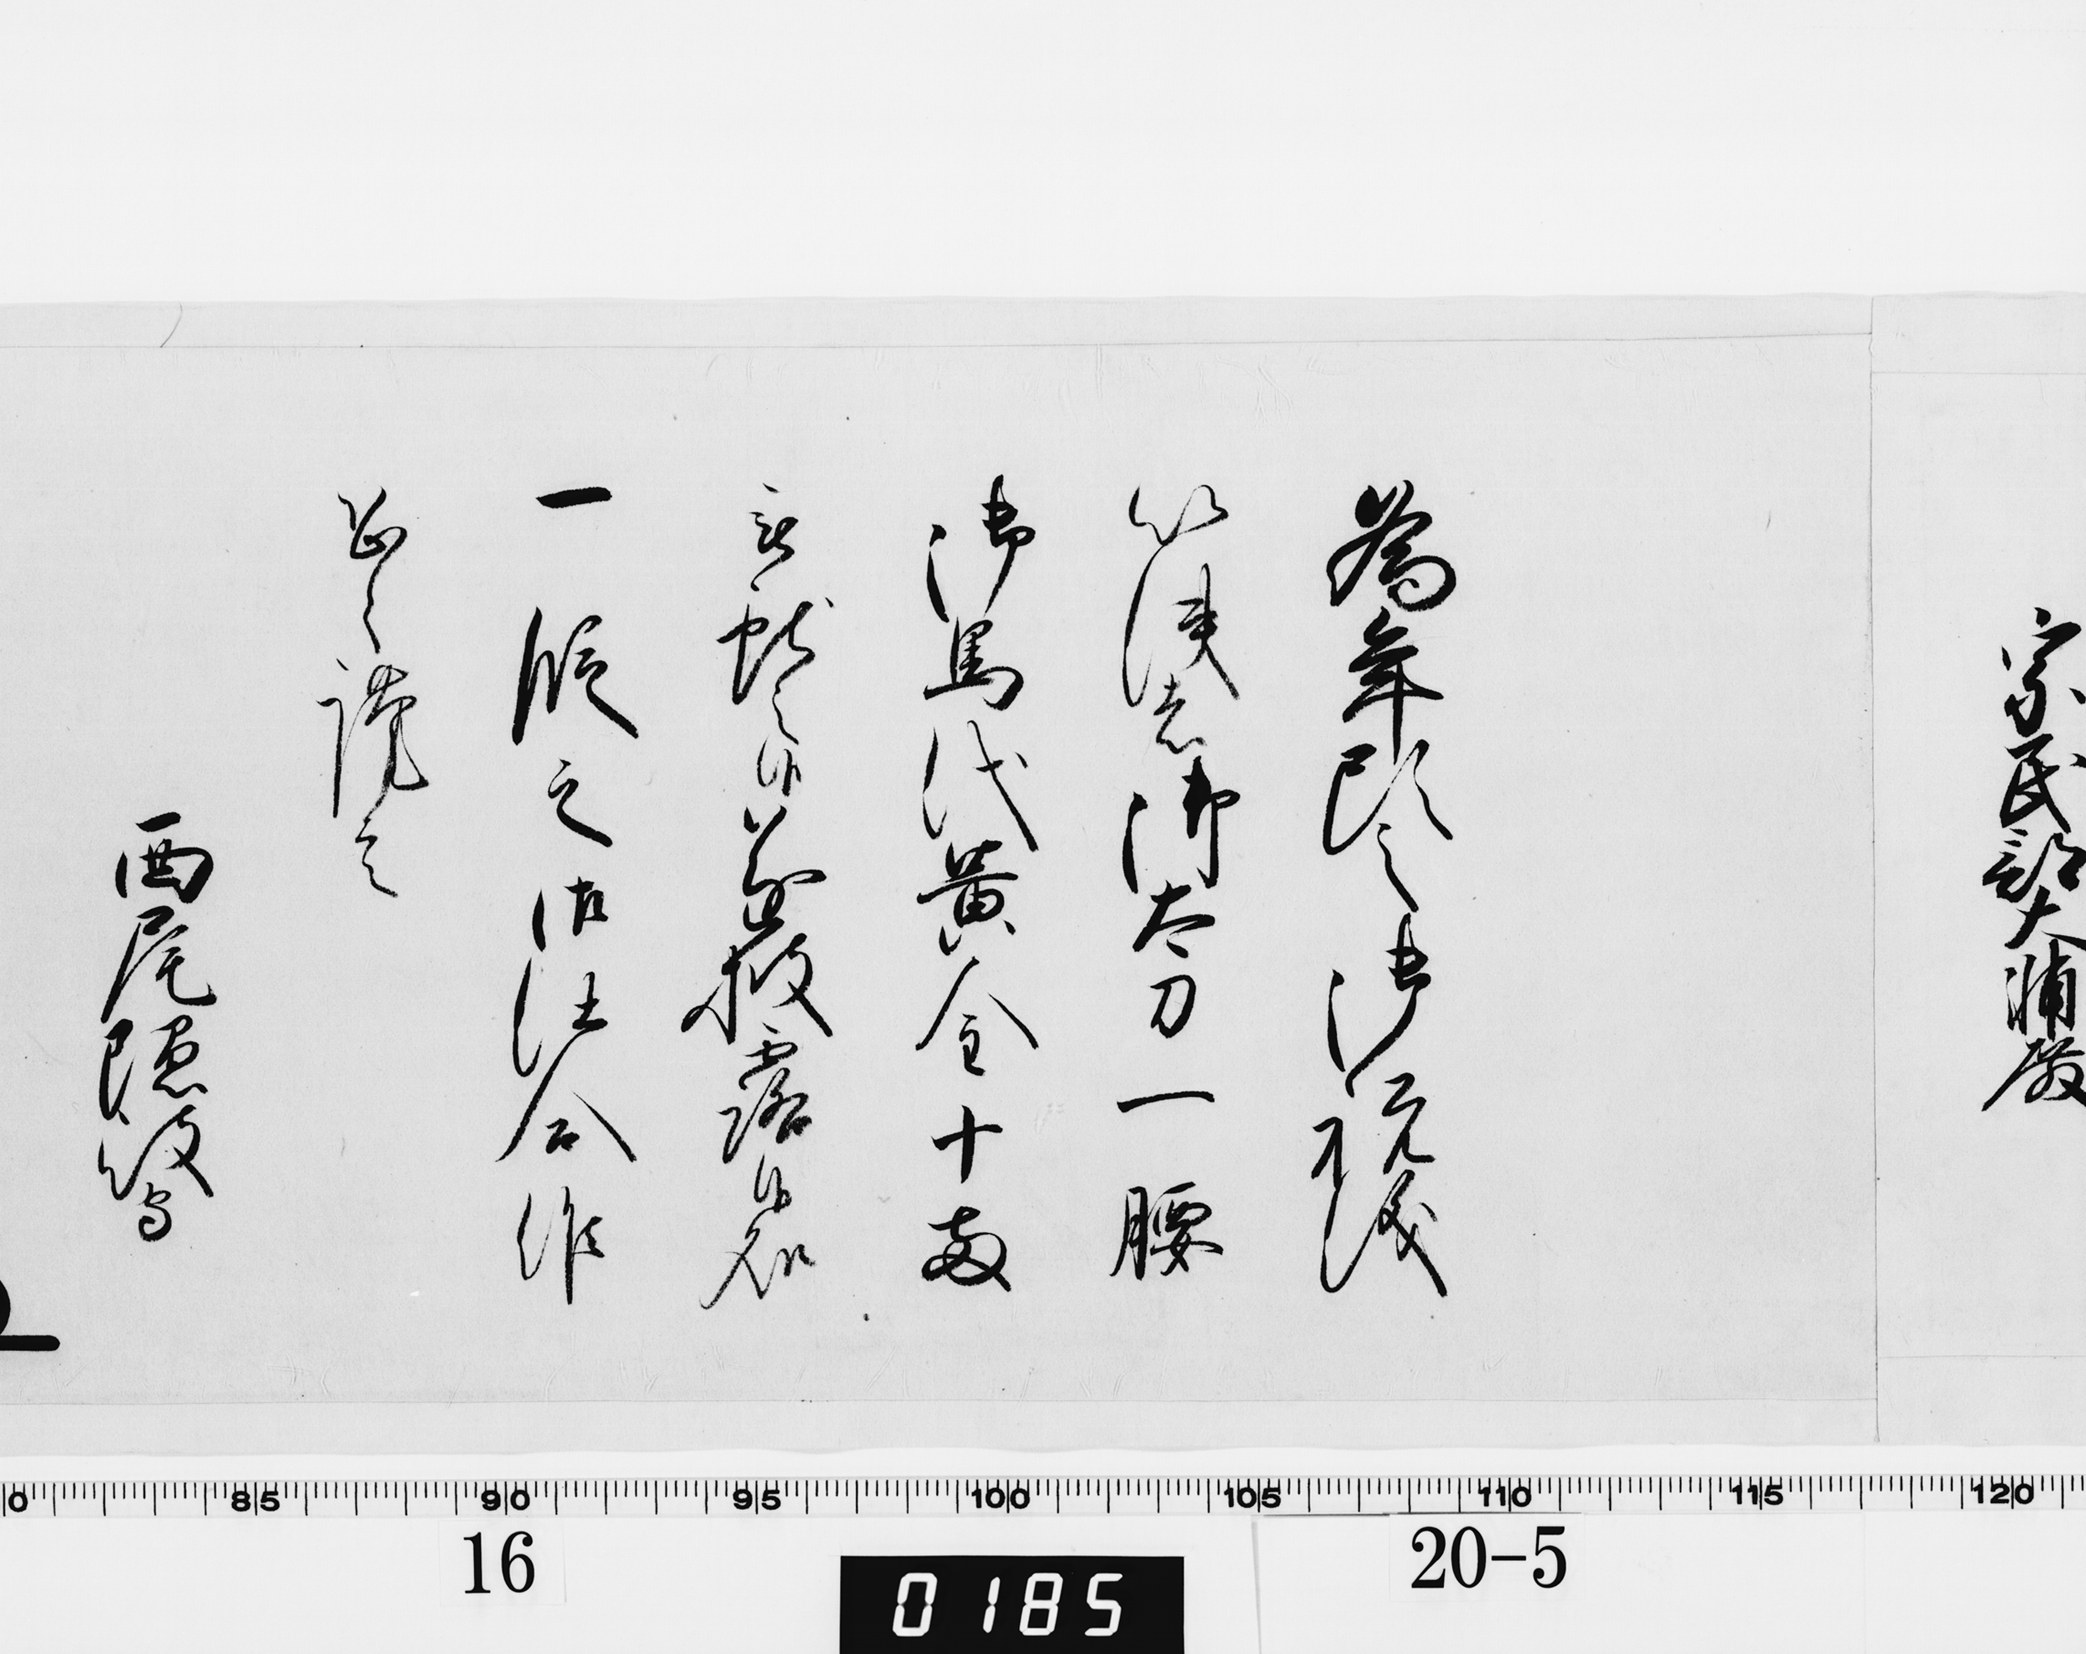 宗民部大輔殿
為年頭之御祝儀
以使者御太刀一腰
御馬代黄金十両
被献之候遂披露候処
一段之御仕合候
恐々謹言
西尾隠岐守
0 85 90 95 100 105 110 115 120
16
20-5
0185